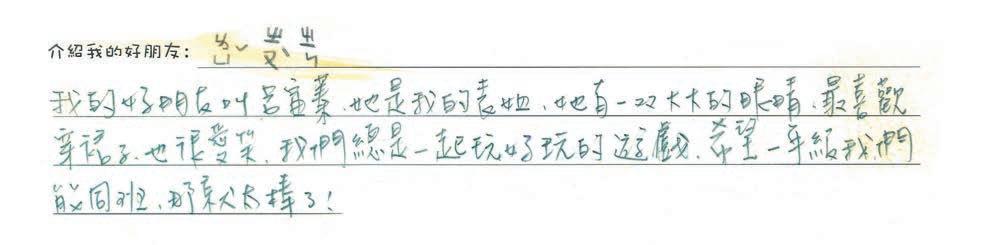 介紹我的好朋友:ㄌㄩˇ ㄓㄣ
我的好朋友叫呂宙蓁、她是我的表姐、她有一双大大的眼睛、最喜歡
穿裙子、也很愛笑、我們總是一起玩好玩的遊戲、希望一年級我們
能同班、那就太棒了!